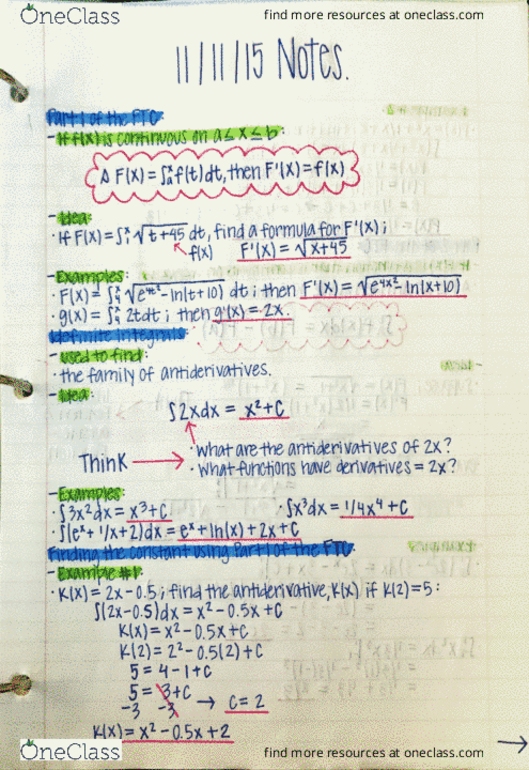 OneClass find more resources at oneclass.com
11/11/15 Notes.
Part 1 of the FTC
- If f(x) is continuous on a ≤ x ≤ b:
Δ F(x) = ∫ₐˣ f(t)dt, then F'(x) = f(x)
- Idea:
· If F(x) = ∫₁ˣ √(t+45) dt, find a formula for F'(x):
f(x) F'(x) = √(x+45)
- Examples:
· F(x) = ∫₄ˣ √(e^(4t²) - ln(t+10)) dt; then F'(x) = √(e^(4x²) - ln(x+10))
· g(x) = ∫₄ˣ 2tdt; then g'(x) = 2x.
definite integrals
- used to find:
· the family of antiderivatives.
- Idea:
∫2xdx = x²+C
· what are the antiderivatives of 2x?
Think → · what functions have derivatives = 2x?
- Examples:
· ∫3x²dx = x³+C · ∫x³dx = 1/4x⁴+C
· ∫(eˣ + 1/x+2)dx = eˣ+ln(x)+2x+C
Finding the constant using Part 1 of the FTC
- Example #1:
· K(x) = 2x-0.5; find the antiderivative, K(x) if K(2)=5:
∫(2x-0.5)dx = x²-0.5x+C
K(x) = x²-0.5x+C
K(2) = 2²-0.5(2)+C
5 = 4-1+C
5 = 3+C
-3 -3 → C=2
K(x) = x²-0.5x+2
OneClass find more resources at oneclass.com